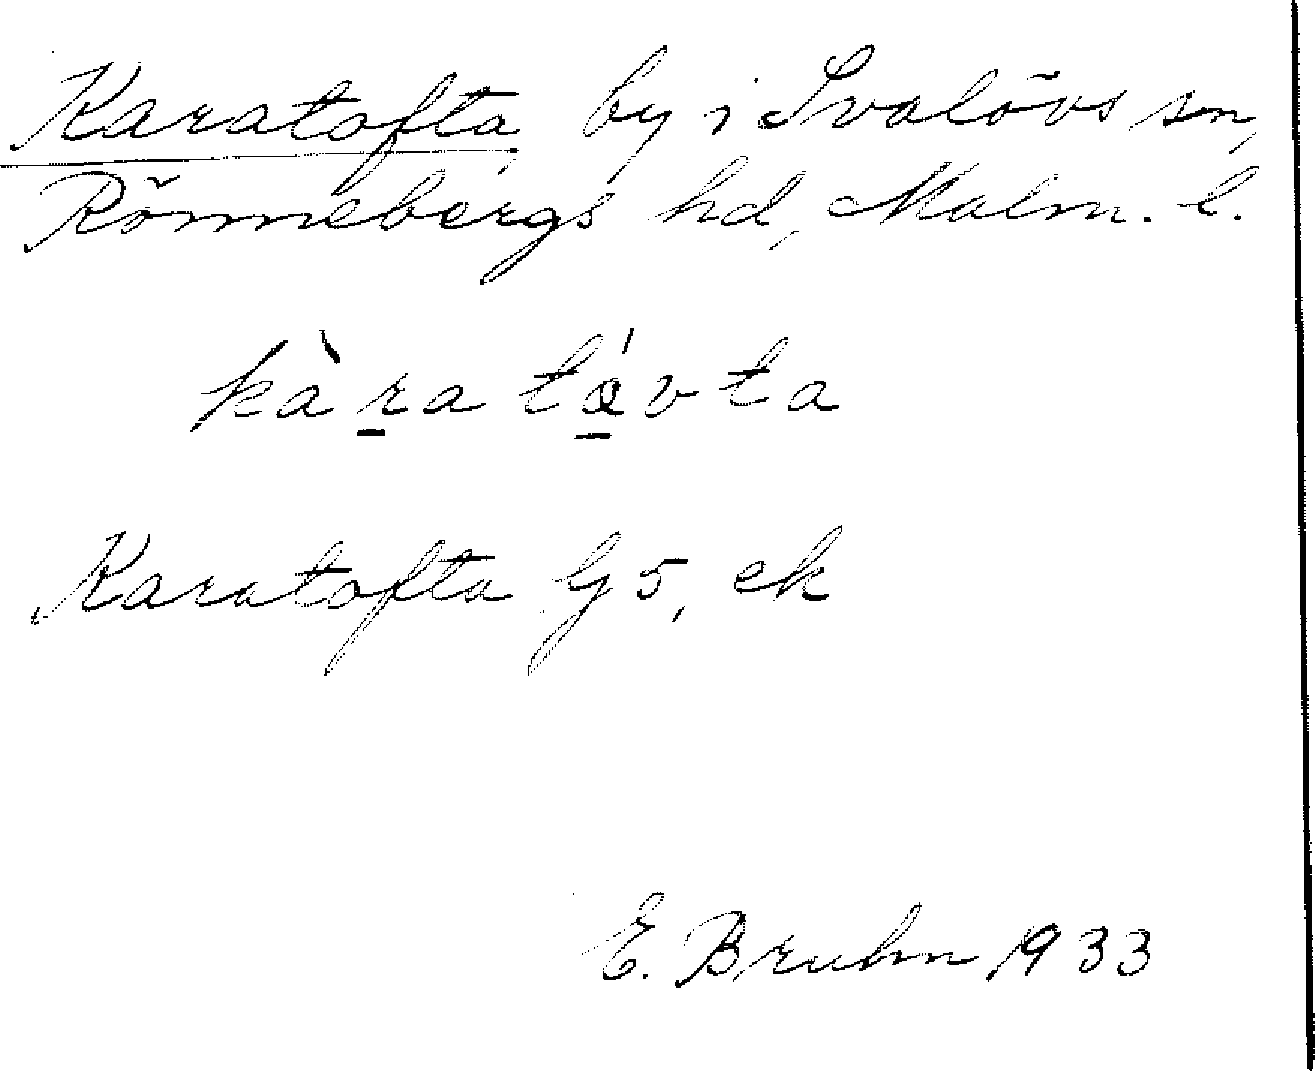 Karatofta by i Svalövs sn,
Rönnebergs hd, Malm. l.
kàra távta
Karatofta G 5, ek
E. Bruhn 1933